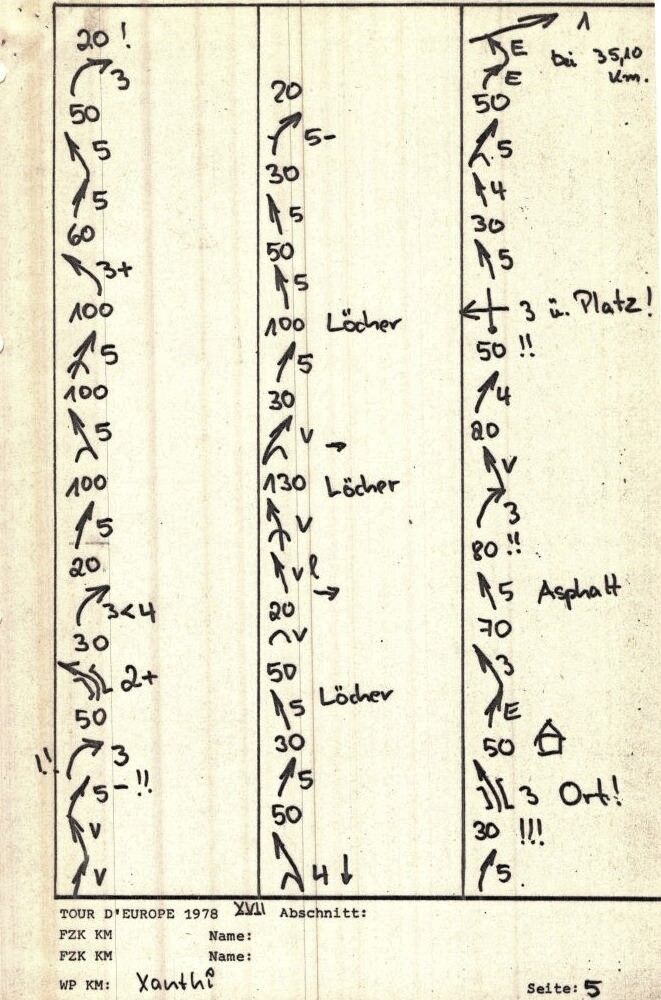 20 !
3
50
5
5
60
3+
100
5
100
5
100
5
20
3<4
30
2+
50
!! 3
5-!!
V
V
20
5-
30
5
50
5
100 Löcher
5
30
V →
130 Löcher
V
V l
→
20
V
50
5 Löcher
30
5
50
4 ↓
1
E bei 35,10
E Km.
50
5
4
30
5
3 ü. Platz!
50 !!
4
20
V
3
80 !!
5 Asphalt
70
3
E
50
3 Ort!
30 !!!
5
TOUR D'EUROPE 1978 XVII Abschnitt:
FZK KM Name:
FZK KM Name:
WP KM: Xanthi Seite: 5